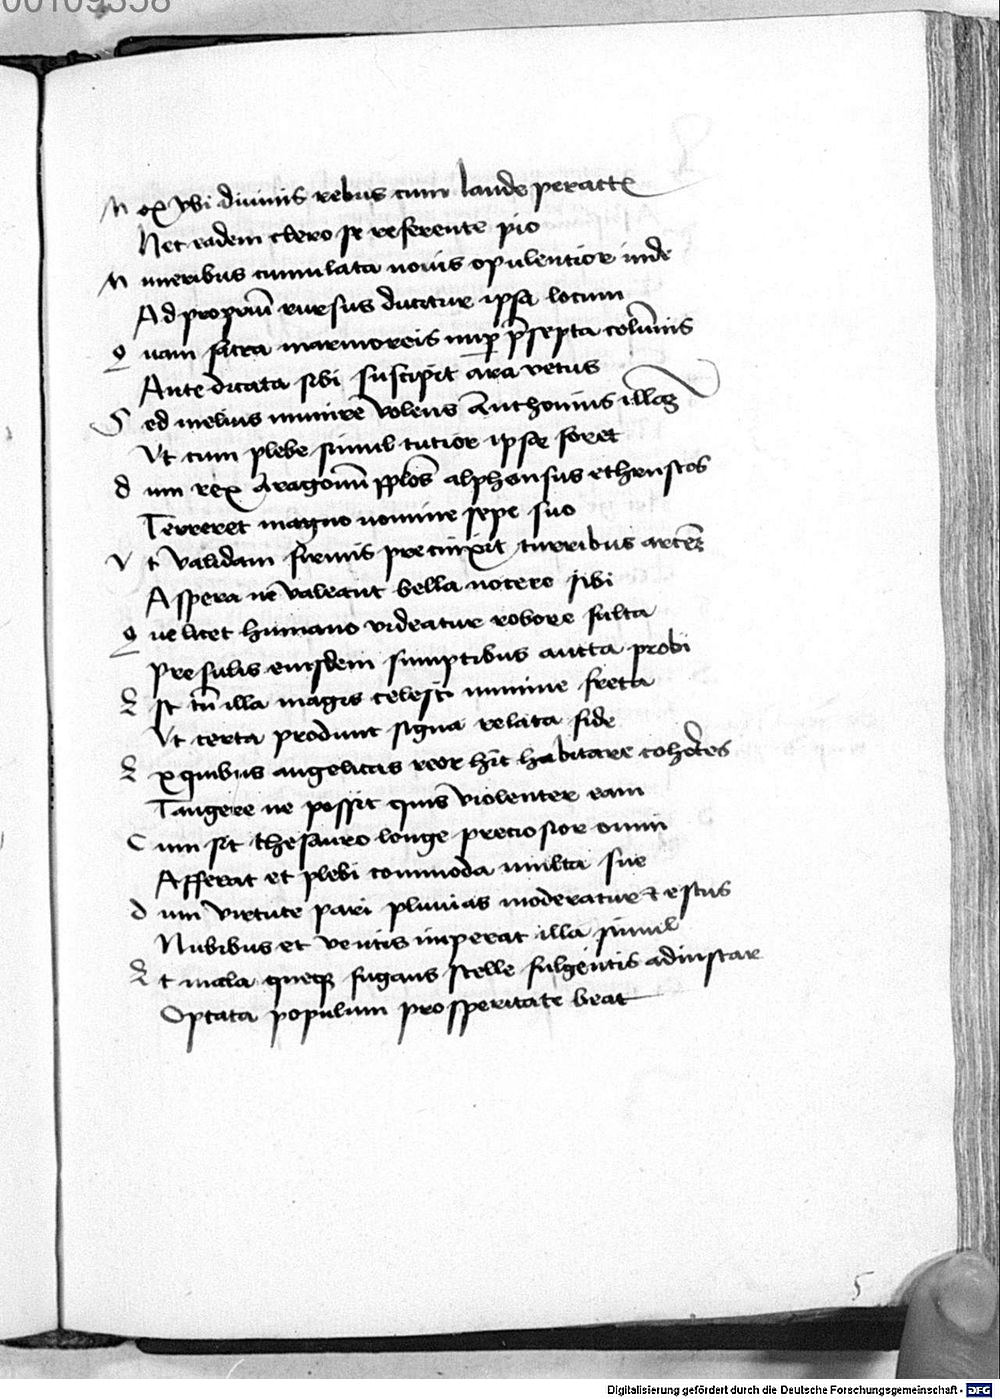 00109358
M ox vbi diuinis rebus cum laude peractis
Hec eadem clero se referente pio
M uneribus cumulata nouis opulentior inde
Ad propriũ rursus ducitur ipsa locum
Q uam sacra marmoreis nup p̃septa colũnis
Ante dicata sibi suscipit ara vetus
S ed melius munire volens Anthonius illaȝ
Vt cum plebe simul tutior ipsa foret
d um rex Aragonũ pplõs alphonsus ethruscos
Terreret magno nomine sepe suo
V t validam firmis precinxit turribus arcẽ
Aspera ne valeant bella nocere sibi
Q ue licet humano videatur robore fulta
Presulis eiusdem sumptibus aucta probi
E st tñ illa magis celesti numine freta
Vt certa produnt signa relata fide
E x quibus angelicas reor hic habitare cohortes
Tangere ne possit quis violenter eam
C um sit thesauro longe preciosior omni
Afferat et plebi commoda multa sue
d um virtute pari pluuias moderatur & estus
Nubibus et ventis imperat illa simul
E t mala queqȝ fugans stelle fulgentis adinstar
Optata populum prosperitate beat
5
Digitalisierung gefördert durch die Deutsche Forschungsgemeinschaft - DFG